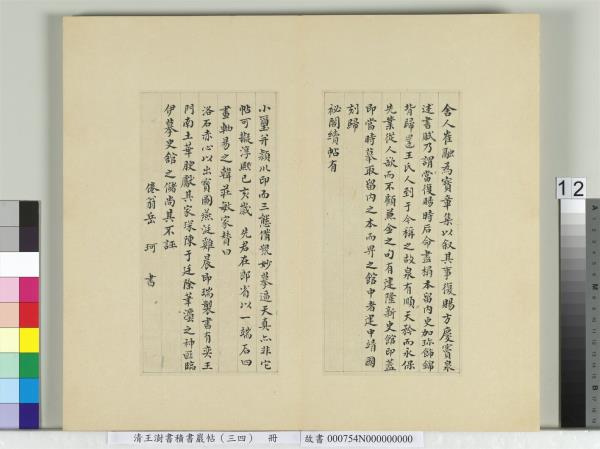 舍人崔融為寶章集以叙其事復賜方慶竇泉
述書賦乃謂當復賜時后命盡榻本留內更加珎飾錦
背歸還王氏人到于今稱之故泉有順天矜而永保
先業從人欲而不顧蒹金之句有建隆新史館印蓋
即當時摹取留內之本而畀之館中者建中靖國
刻歸
祕閣續帖有
小璽并潁川印而三態備眾妙摹逼天真亦非它
帖可擬淳熙己亥歲 先君在郎省以一端石四
畫軸易之韓莊敏家替曰
洛石赤心以出寶圖燕泛雞晨即瑞製書有奕王
門南土華腴獻其家球陳于廷除筆濃之神匹臨
伊摹史館之儲尚其不誣
倦翁岳 珂 書
12
清王澍書積書巖帖（三四） 冊
故書 000754N000000000